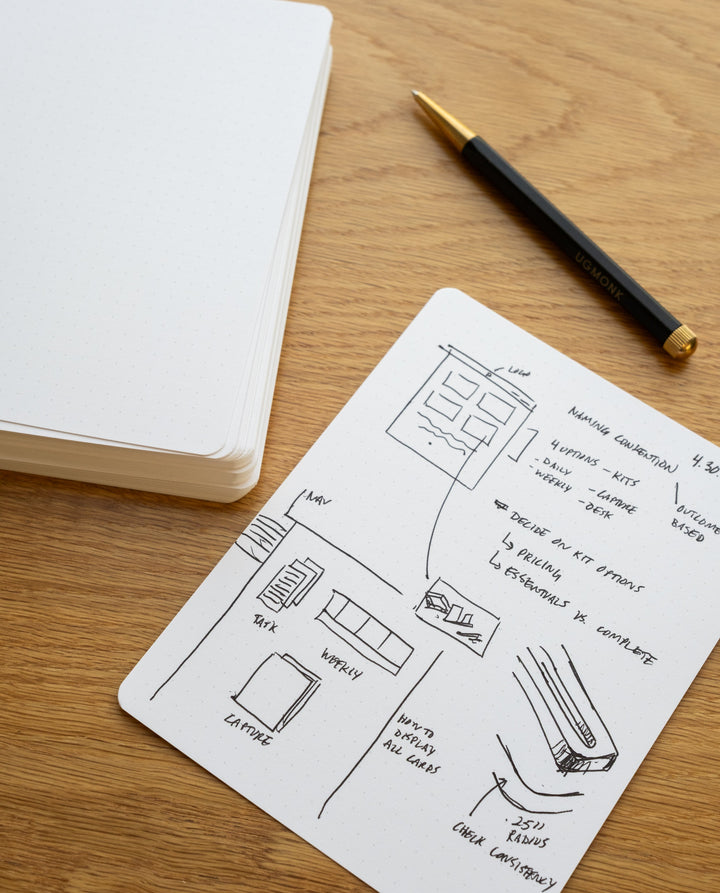 UGMONK
LOGO
NAMING CONVENTION
4.30
4 OPTIONS – KITS
- DAILY
- CAPTURE
- WEEKLY
- DESK
OUTCOME
BASED
DECIDE ON KIT OPTIONS
↳ PRICING
↳ ESSENTIALS VS. COMPLETE
NAV
TASK
WEEKLY
CAPTURE
HOW TO
DISPLAY
ALL CARDS
.25"
RADIUS
CHECK CONSISTENCY